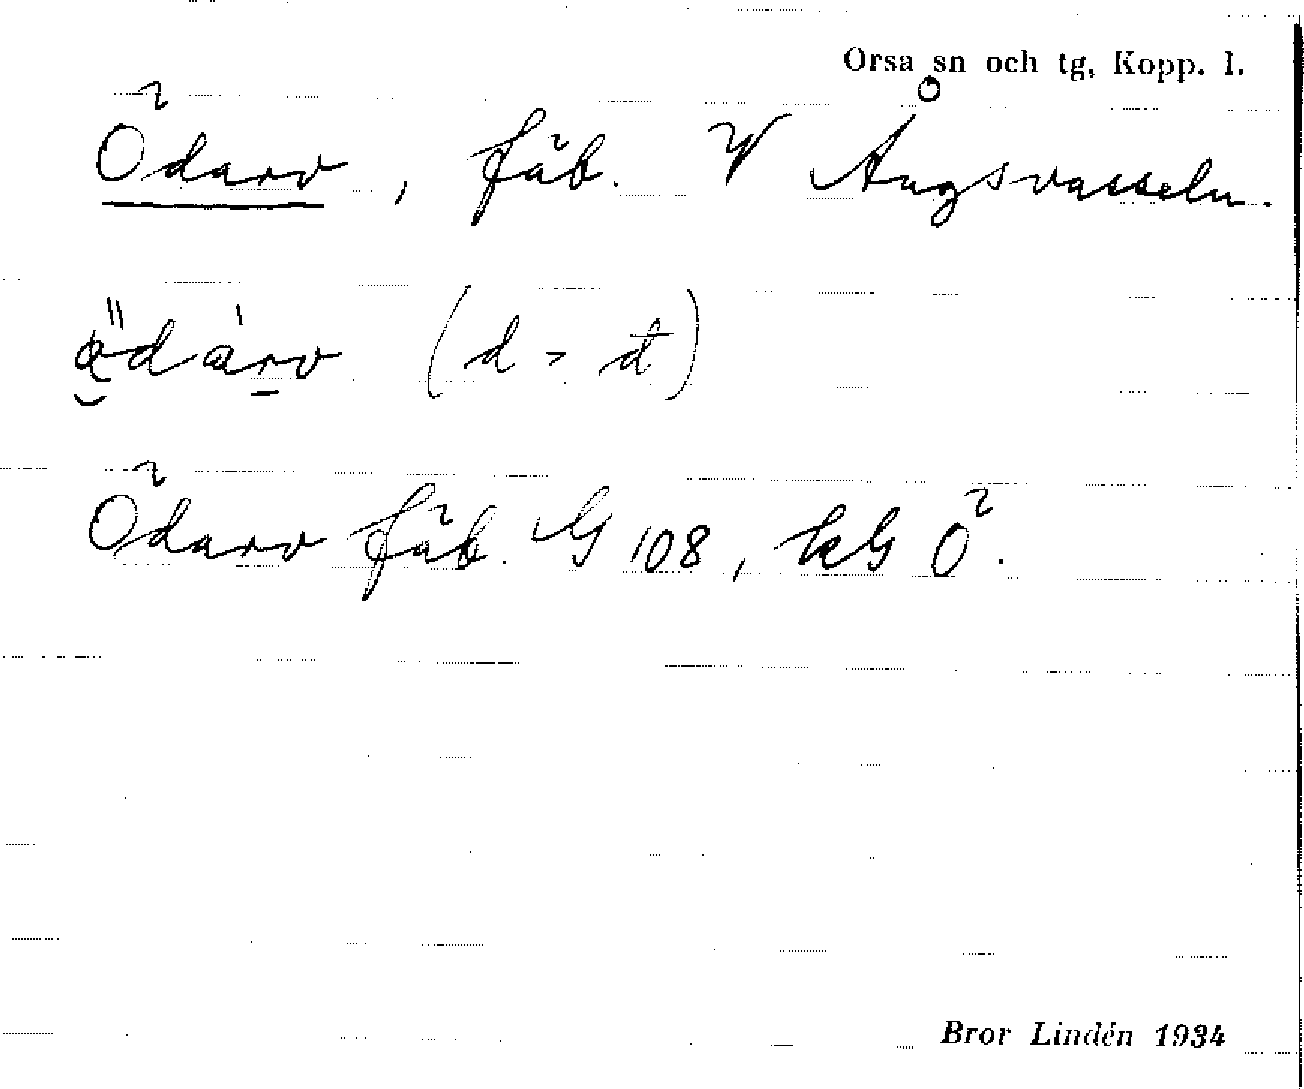 Orsa sn och tg, Kopp. l.
Ödarv, fäb. V Ångsvasseln.
ädarv (d = đ)
Ödarv fäb. G 108, kG Ö.
Bror Lindén 1934